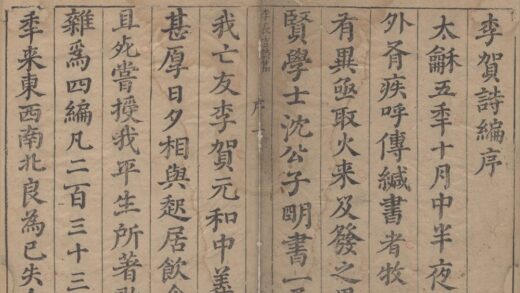 李賀詩編序
太龢五秊十月中半夜
外有疾呼傳緘書者牧
有異亟取火来及發之
賢學士沈公子朙書一
我亡友李賀元和中義
甚厚日夕相與起居飲
且死嘗授我平生所著
雜為四編凡二百三十三
秊来東西南北良為已失